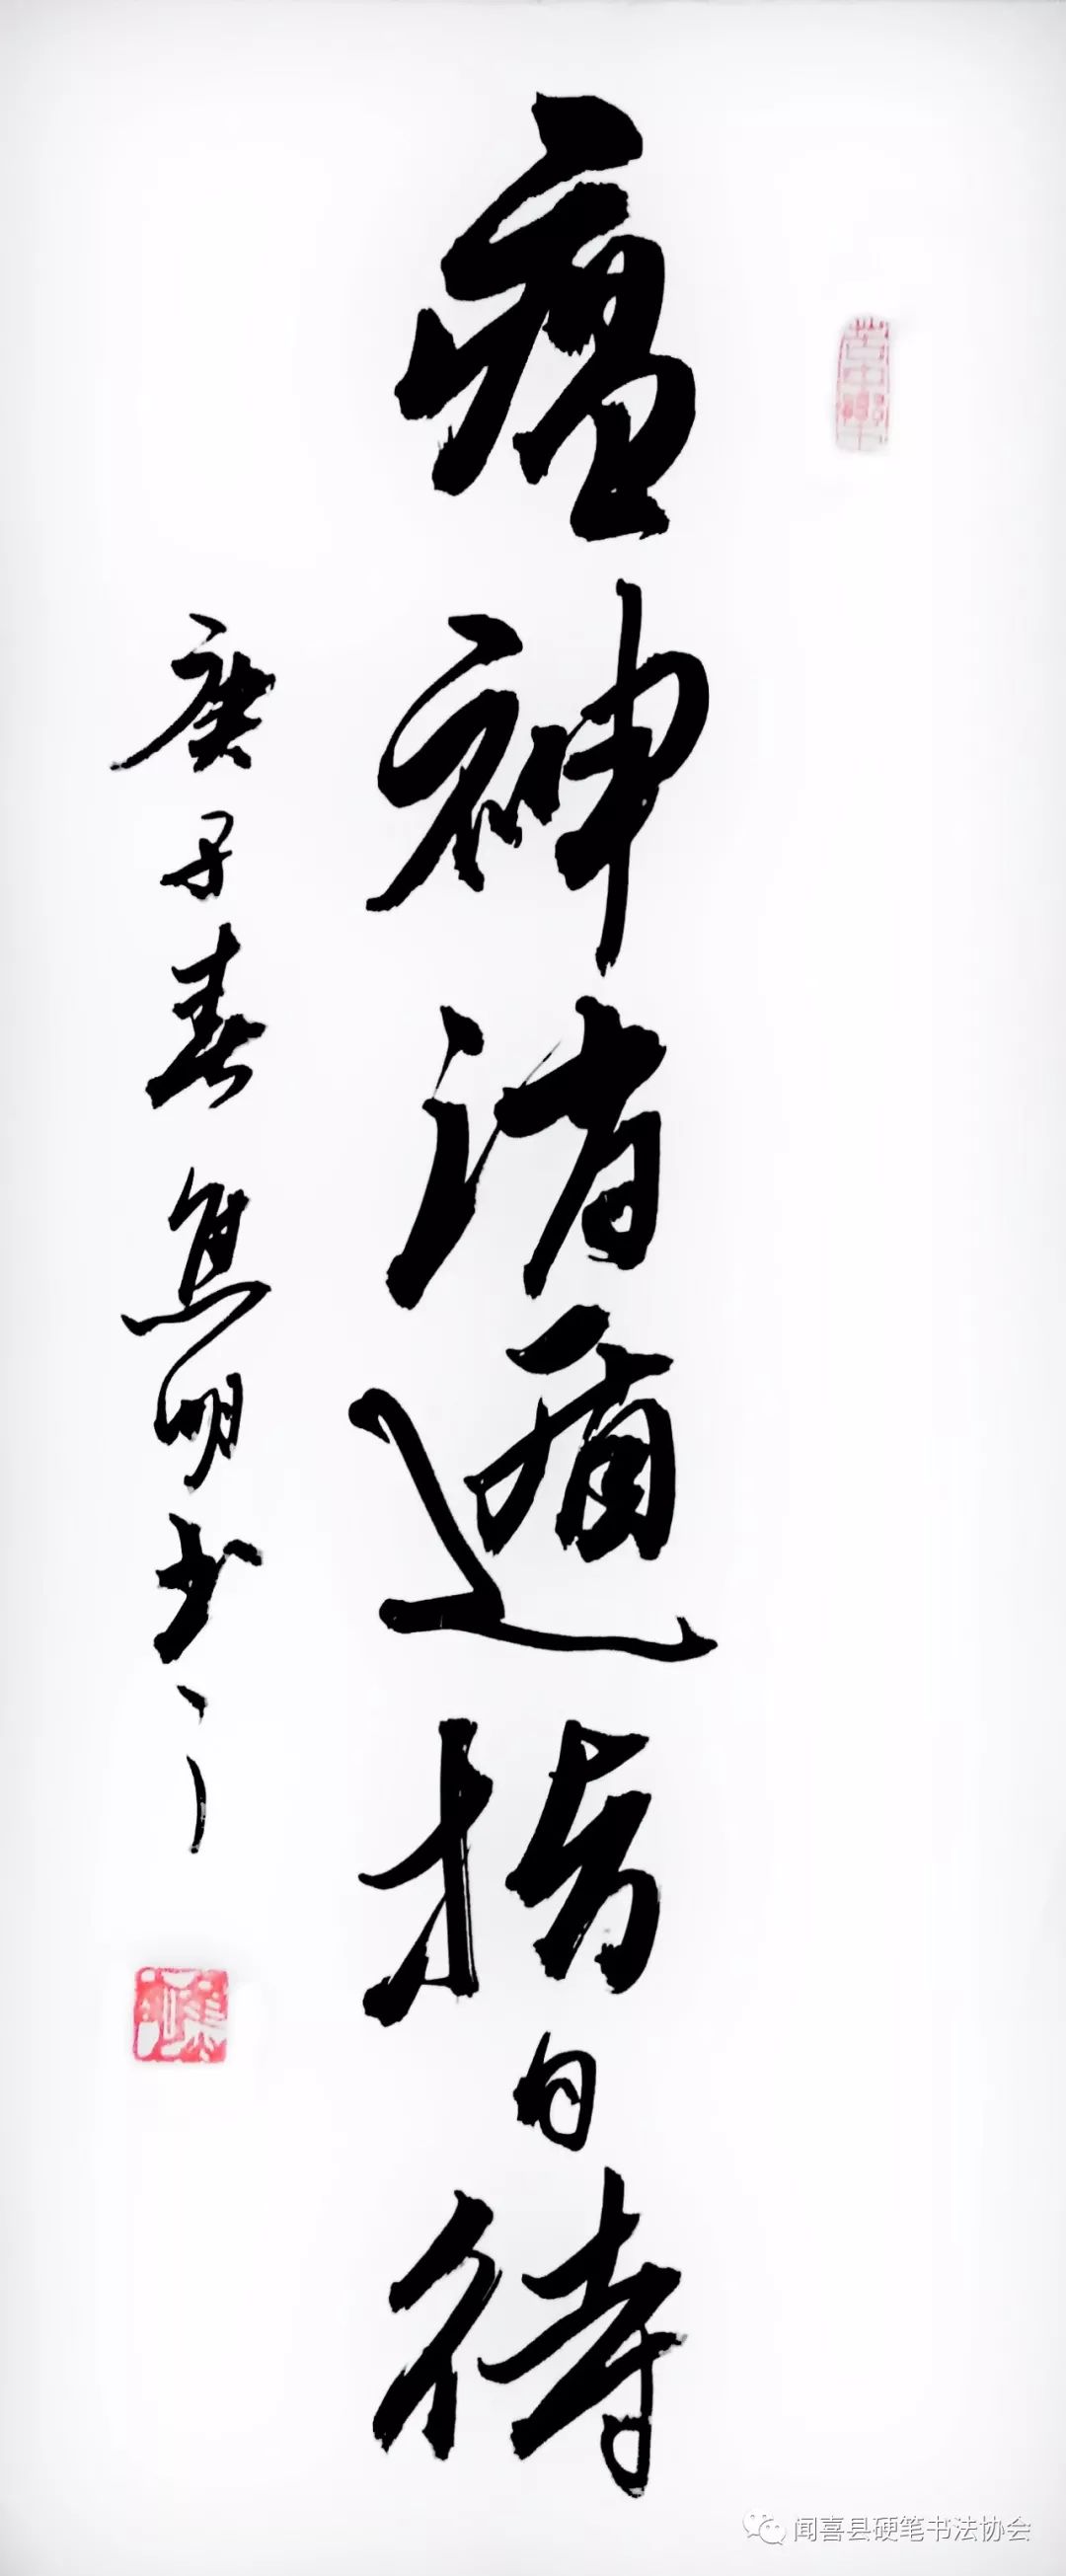 瘟神消遁指日待
庚子春焦明书
闻喜县硬笔书法协会